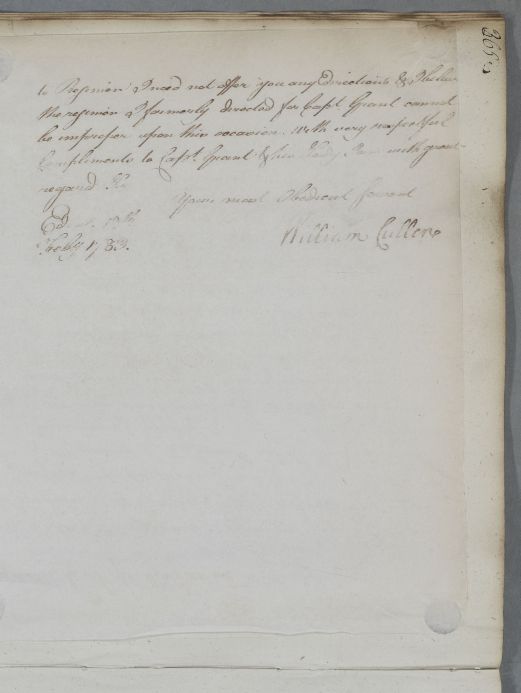 365
to Regimen I need not offer you any Directions & I believe
the regimen I formerly directed for Capt Grant cannot
be improper upon this occasion. With very respectful
Compliments to Capt. Grant & his Lady I am with great
regard
Your most Obedient Servant
William Cullen
Feby 1783.